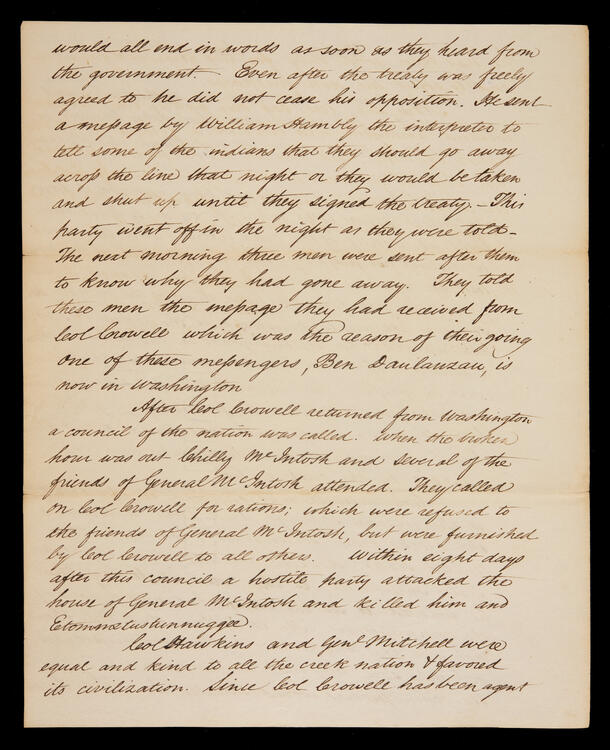 would all end in words as soon as they heard from
the government. Even after the treaty was freely
agreed to he did not cease his opposition. He sent
a message by William Hambly the interpreter to
tell some of the indians that they should go away
across the line that night or they would be taken
and shut up until they signed the treaty. – This
party went off in the night as they were told –
The next morning three men were sent after them
to know why they had gone away. They told
these men the message they had received from
Col Crowell which was the reason of their going
One of these messengers, Ben Daulauzau, is
now in Washington
After Col Crowell returned from Washington
a council of the nation was called. When the broken
hour was out Chilly McIntosh and several of the
friends of General McIntosh attended. They called
on Col Crowell for rations; which were refused to
the friends of General McIntosh, but were furnished
by Col Crowell to all others. Within eight days
after this council a hostile party attacked the
house of General McIntosh and killed him and
Etommetustunnuggee.
Col Hawkins and Genl Mitchell were
equal and kind to all the creek nation & favored
its civilization. Since Col Crowell has been agent